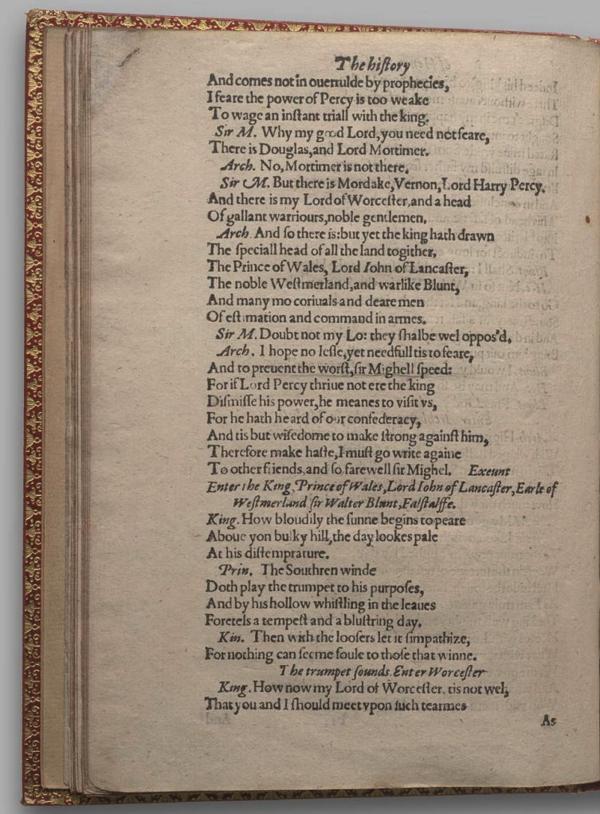 The hiſtory
And comes not in ouerrulde by prophecies,
I feare the power of Percy is too weake
To wage an inſtant triall with the king.
Sir M. Why my good Lord, you need not feare,
There is Douglas, and Lord Mortimer.
Arch. No, Mortimer is not there.
Sir M. But there is Mordake, Vernon, Lord Harry Percy.
And there is my Lord of Worceſter, and a head
Of gallant warriours, noble gentlemen.
Arch. And ſo there is: but yet the king hath drawn
The ſpeciall head of all the land togither,
The Prince of Wales, Lord Iohn of Lancaſter,
The noble Weſtmerland, and warlike Blunt,
And many mo coriuals and deare men
Of eſtimation and command in armes.
Sir M. Doubt not my Lo: they ſhalbe wel oppos'd,
Arch. I hope no leſſe, yet needfull tis to feare,
And to preuent the worſt, ſir Mighell ſpeed:
For if Lord Percy thriue not ere the king
Diſmiſſe his power, he meanes to viſit vs,
For he hath heard of our confederacy,
And tis but wiſedome to make ſtrong againſt him,
Therefore make haſte, I muſt go write againe
To other friends, and ſo farewell ſir Mighel. Exeunt
Enter the King, Prince of Wales, Lord Iohn of Lancaſter, Earle of
Weſtmerland ſir Walter Blunt, Falſtalffe.
King. How bloudily the ſunne begins to peare
Aboue yon bulky hill, the day lookes pale
At his diſtemprature.
Prin. The Southren winde
Doth play the trumpet to his purpoſes,
And by his hollow whiſtling in the leaues
Foretels a tempeſt and a bluſtring day.
Kin. Then with the looſers let it ſimpathize,
For nothing can ſeeme foule to thoſe that winne.
The trumpet ſounds. Enter Worceſter
King. How now my Lord of Worceſter, tis not wel,
That you and I ſhould meet vpon ſuch tearmes
As